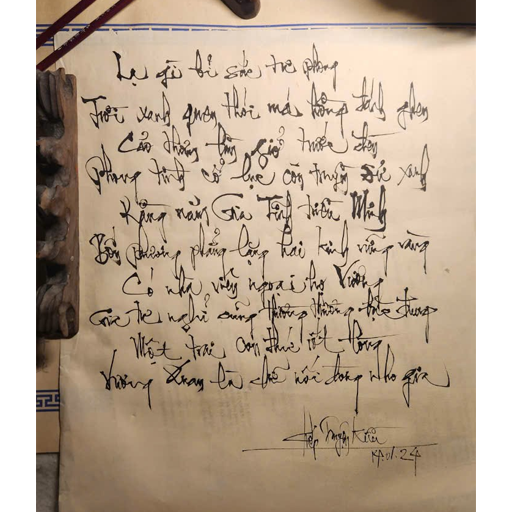 Lạ gì bỉ sắc tư phong
Trời xanh quen thói má hồng đánh ghen
Cảo thơm lần giở trước đèn
Phong tình cổ lục còn truyền sử xanh
Rằng năm Gia Tĩnh triều Minh
Bốn phương phẳng lặng hai kinh vững vàng
Có nhà viên ngoại họ Vương
Gia tư nghỉ cũng thường thường bậc trung
Một trai con thứ rốt lòng
Vương Quan là chữ nối dòng nho gia
14.01.24